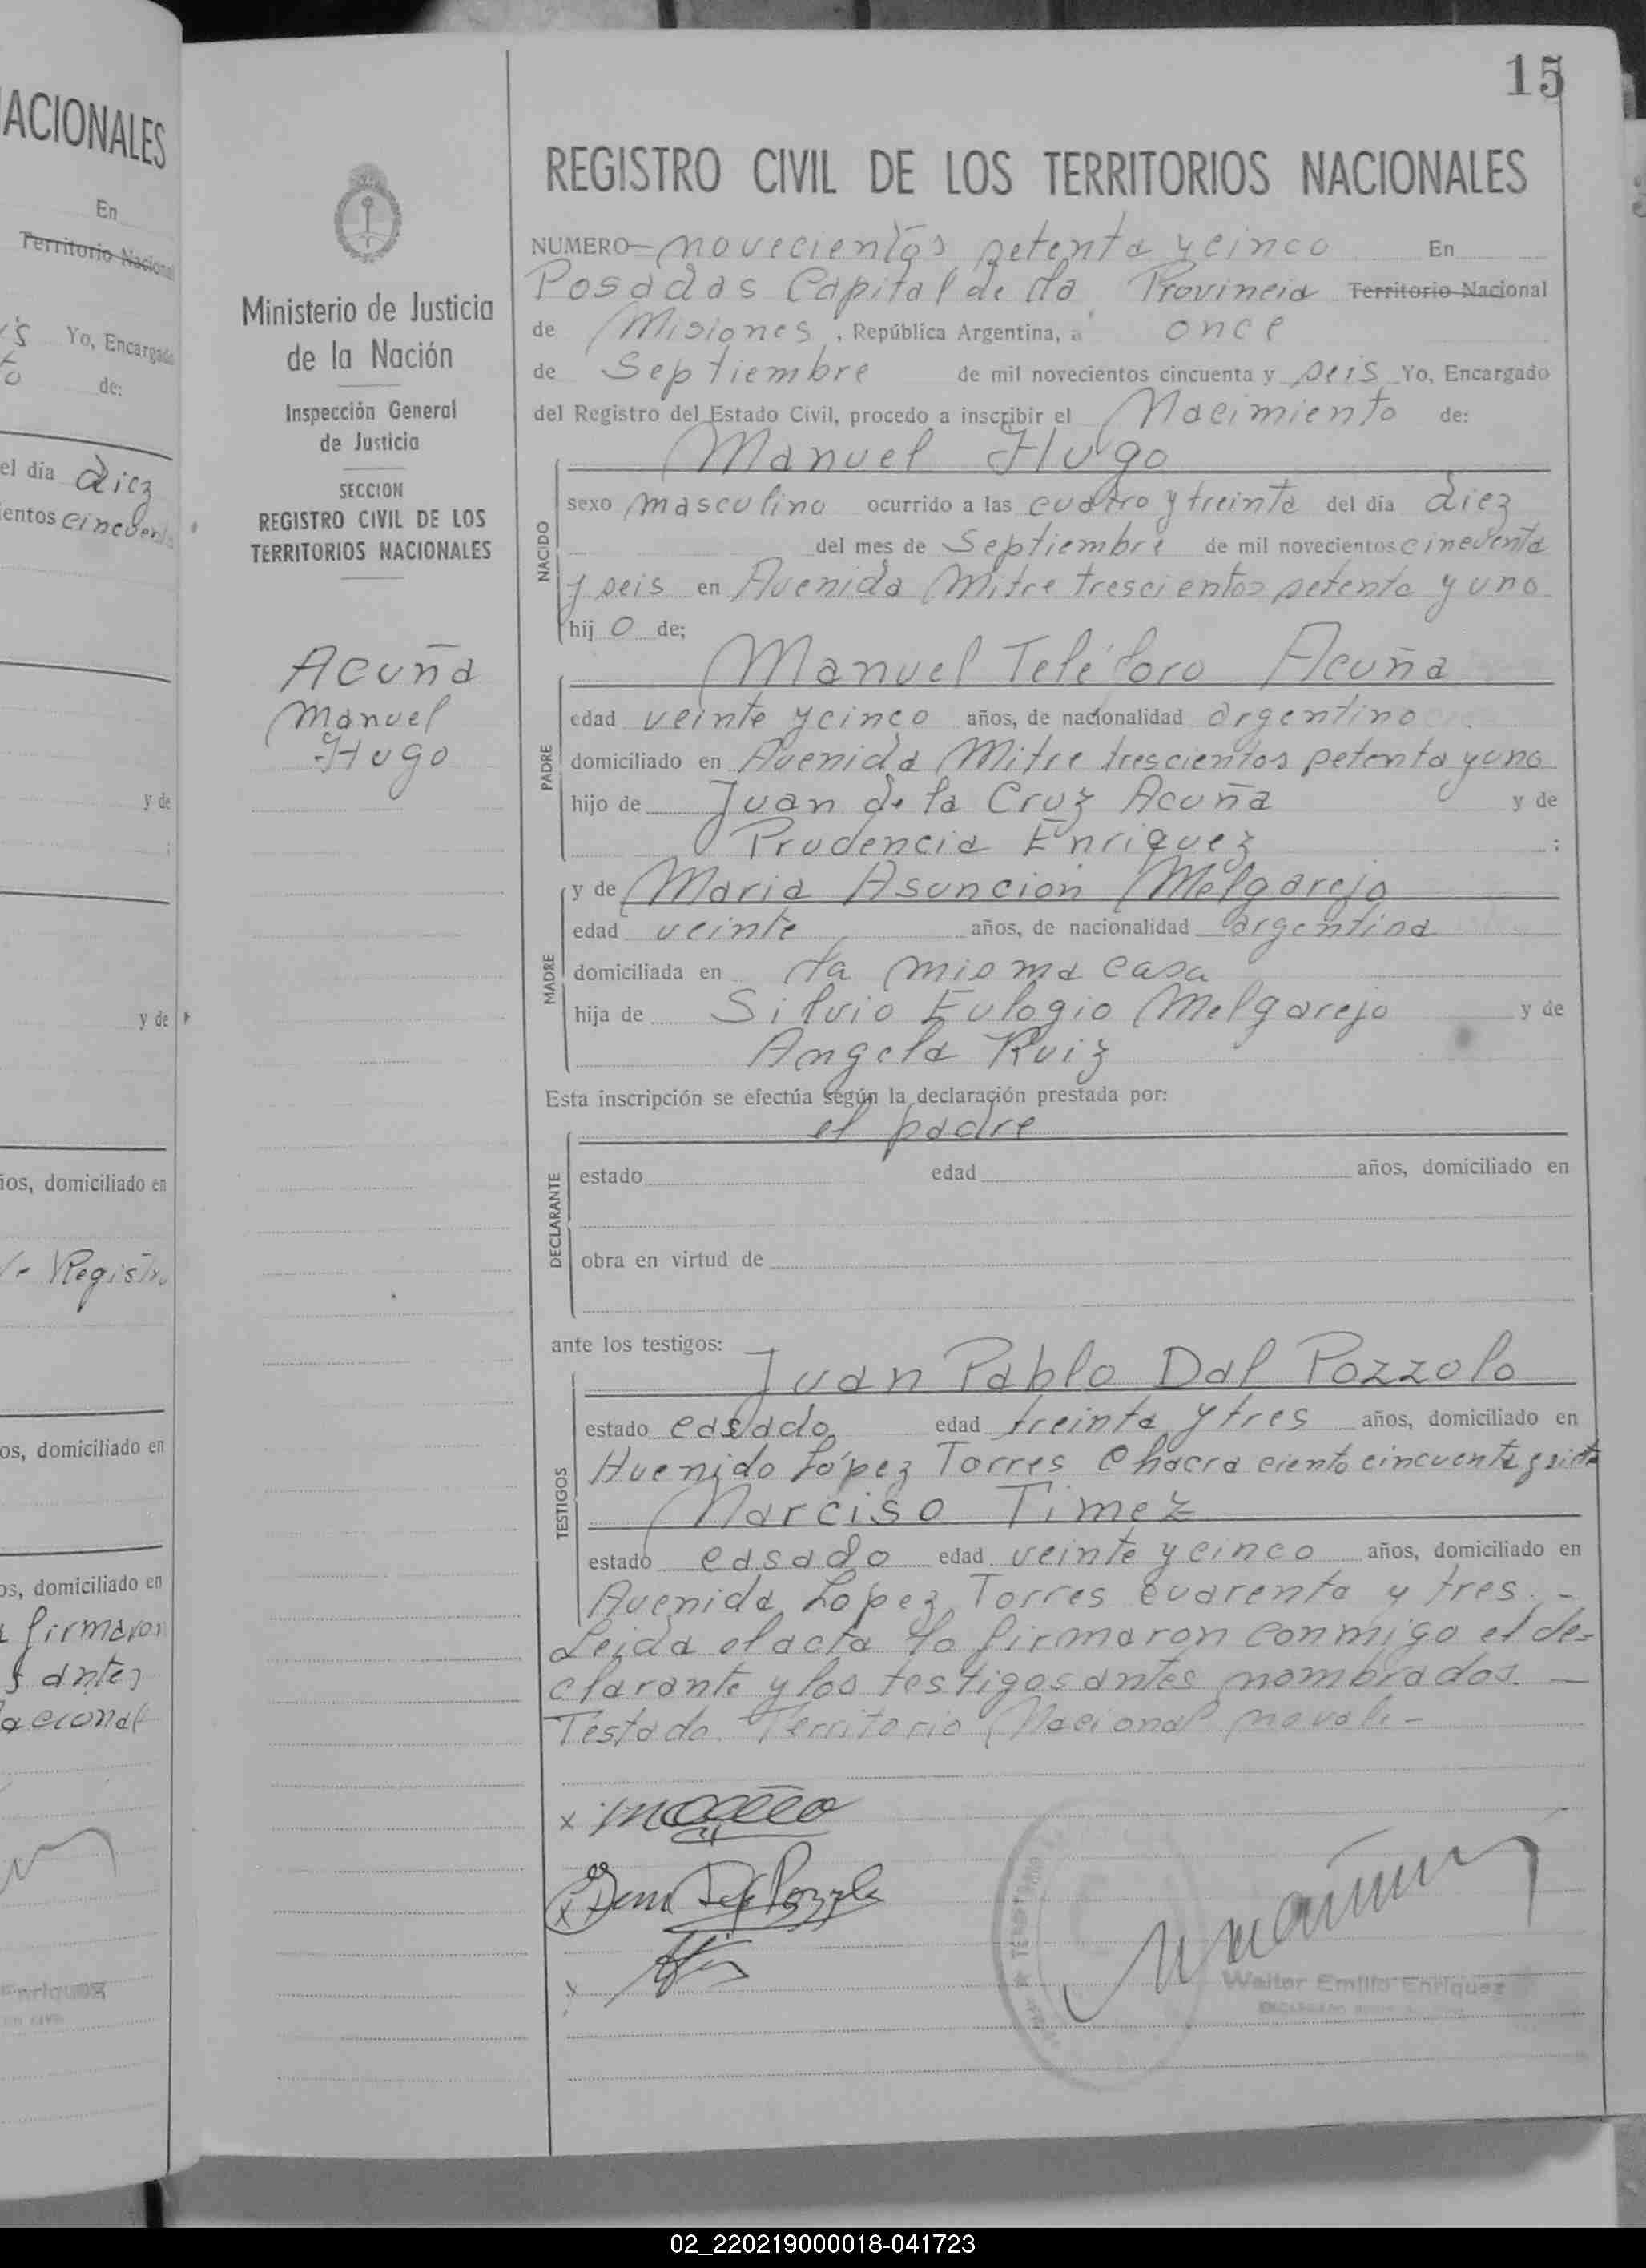 ACIONALES
En
Territorio Nacional
Yo, Encargado
de:
el día diez
entos cincuenta
y de
y de
ios, domiciliado en
Registro
os, domiciliado en
os, domiciliado en
firmaron
s antes
acional
Enriquez
15
Ministerio de Justicia
de la Nación
Inspección General
de Justicia
SECCION
REGISTRO CIVIL DE LOS
TERRITORIOS NACIONALES
Acuña
Manuel
Hugo
REGISTRO CIVIL DE LOS TERRITORIOS NACIONALES
NUMERO novecientos setenta y cinco En
Posadas Capital de la Provincia Territorio Nacional
de Misiones, República Argentina, a once
de Septiembre de mil novecientos cincuenta y seis Yo, Encargado
del Registro del Estado Civil, procedo a inscribir el Nacimiento de:
Manuel Hugo
NACIDO
sexo masculino ocurrido a las cuatro y treinta del día diez
del mes de Septiembre de mil novecientos cincuenta
y seis en Avenida Mitre trescientos setenta y uno
hij o de;
Manuel Teléforo Acuña
PADRE
edad veinte y cinco años, de nacionalidad argentino
domiciliado en Avenida Mitre trescientos setenta y uno
hijo de Juan de la Cruz Acuña y de
Prudencia Enriquez ;
MADRE
y de Maria Asunción Melgarejo
edad veinte años, de nacionalidad argentina
domiciliada en la misma casa
hija de Silvio Eulogio Melgarejo y de
Angela Ruiz
Esta inscripción se efectúa según la declaración prestada por:
el padre
DECLARANTE
estado edad años, domiciliado en
obra en virtud de
ante los testigos:
Juan Pablo Dal Pozzolo
TESTIGOS
estado casado edad treinta y tres años, domiciliado en
Avenida López Torres Chacra ciento cincuenta y siete
Narciso Timez
estado casado edad veinte y cinco años, domiciliado en
Avenida López Torres cuarenta y tres.-
Leida el acta la firmaron conmigo el de-
clarante y los testigos antes nombrados.—
Testado. Territorio Nacional no vale-
Walter Emilio Enriquez
02_220219000018-041723